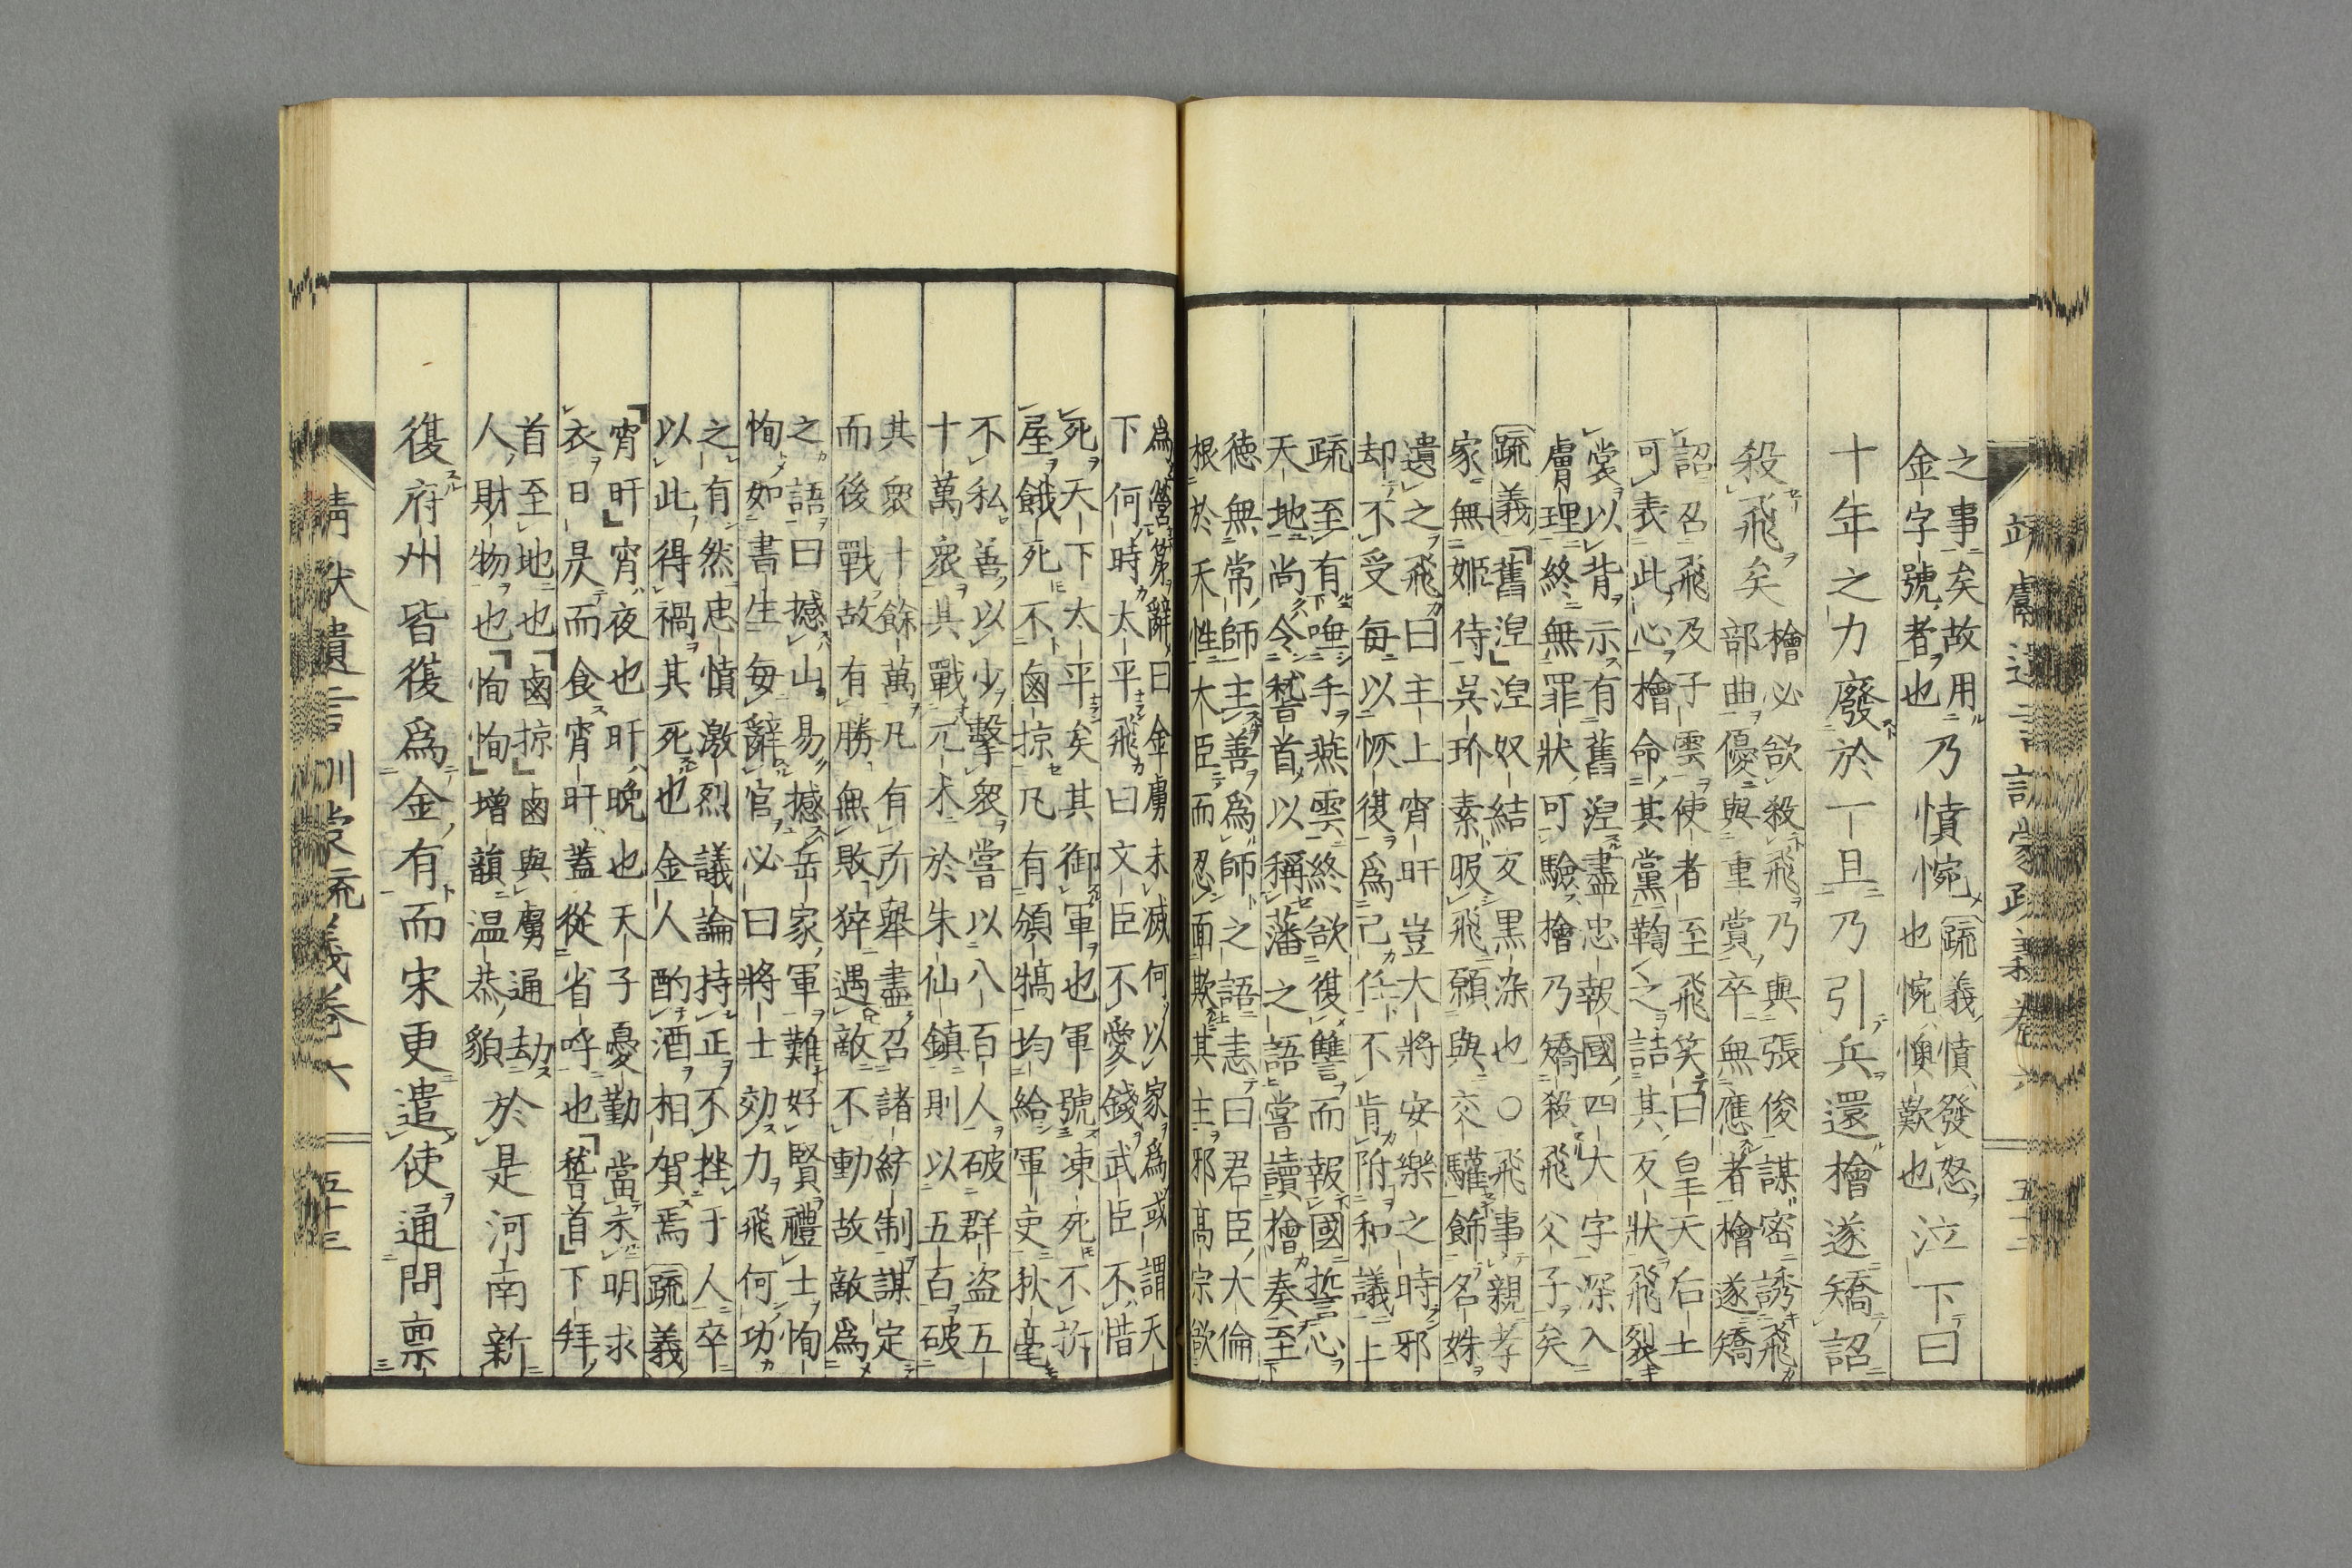 靖獻遺言訓蒙疏義卷六 五十二
之事矣故用
金字號者也
乃憤惋
疏義憤發怒
也惋懊歎也
泣下曰
十年之力廢於一旦乃引兵還檜遂矯詔
殺飛矣
檜必欲殺飛乃與張俊謀密誘飛
部曲優與重賞卒無應者檜遂矯
詔召飛及子雲使者至飛笑曰皇天后土
可表此心檜命其黨鞫之詰其反狀飛裂
裳以背示有舊涅盡忠報國四大字深入
膚理終無罪狀可驗檜乃矯殺飛父子矣
疏義「舊涅」涅奴結反黒染也○飛事親孝
家無姬侍吳玠素服飛願與交驩飾名姝
遺之飛曰主上宵旰豈大將安樂之時邪
却不受每以恢復爲己任不肯附和議上
疏至有唾手燕雲終欲復讐而報國誓心
天地尚令稽首以稱藩之語嘗讀檜奏至
徳無常師主善爲師之語恚曰君臣大倫
根於天性大臣而忍面欺其主邪高宗欲
爲營第辭曰金虜未滅何以家爲或謂天
下何時太平飛曰文臣不愛錢武臣不惜
死天下太平矣其御軍也軍號凍死不拆
屋餓死不鹵掠凡有頒犒均給軍吏秋毫
不私善以少擊衆嘗以八百人破群盗五
十萬衆其戰兀朮於朱仙鎮則以五百破
其衆十餘萬凡有所舉盡召諸統制謀定
而後戰故有勝無敗猝遇敵不動故敵爲
之語曰撼山易撼岳家軍難好賢禮士恂
恂如書生每辭官必曰將士効力飛何功
之有然忠憤激烈議論持正不挫于人卒
以此得禍其死也金人酌酒相賀焉疏義
「宵旰」宵夜也旰晩也天子憂勤當未明求
衣日昃而食宵旰蓋從省呼也「稽首」下拜
首至地也「鹵掠」鹵與虜通劫
人財物也「恂恂」増韻温恭貌
於是河南新
復府州皆復爲金有而宋更遣使通問禀
靖献遺言訓蒙疏義卷六 五十三